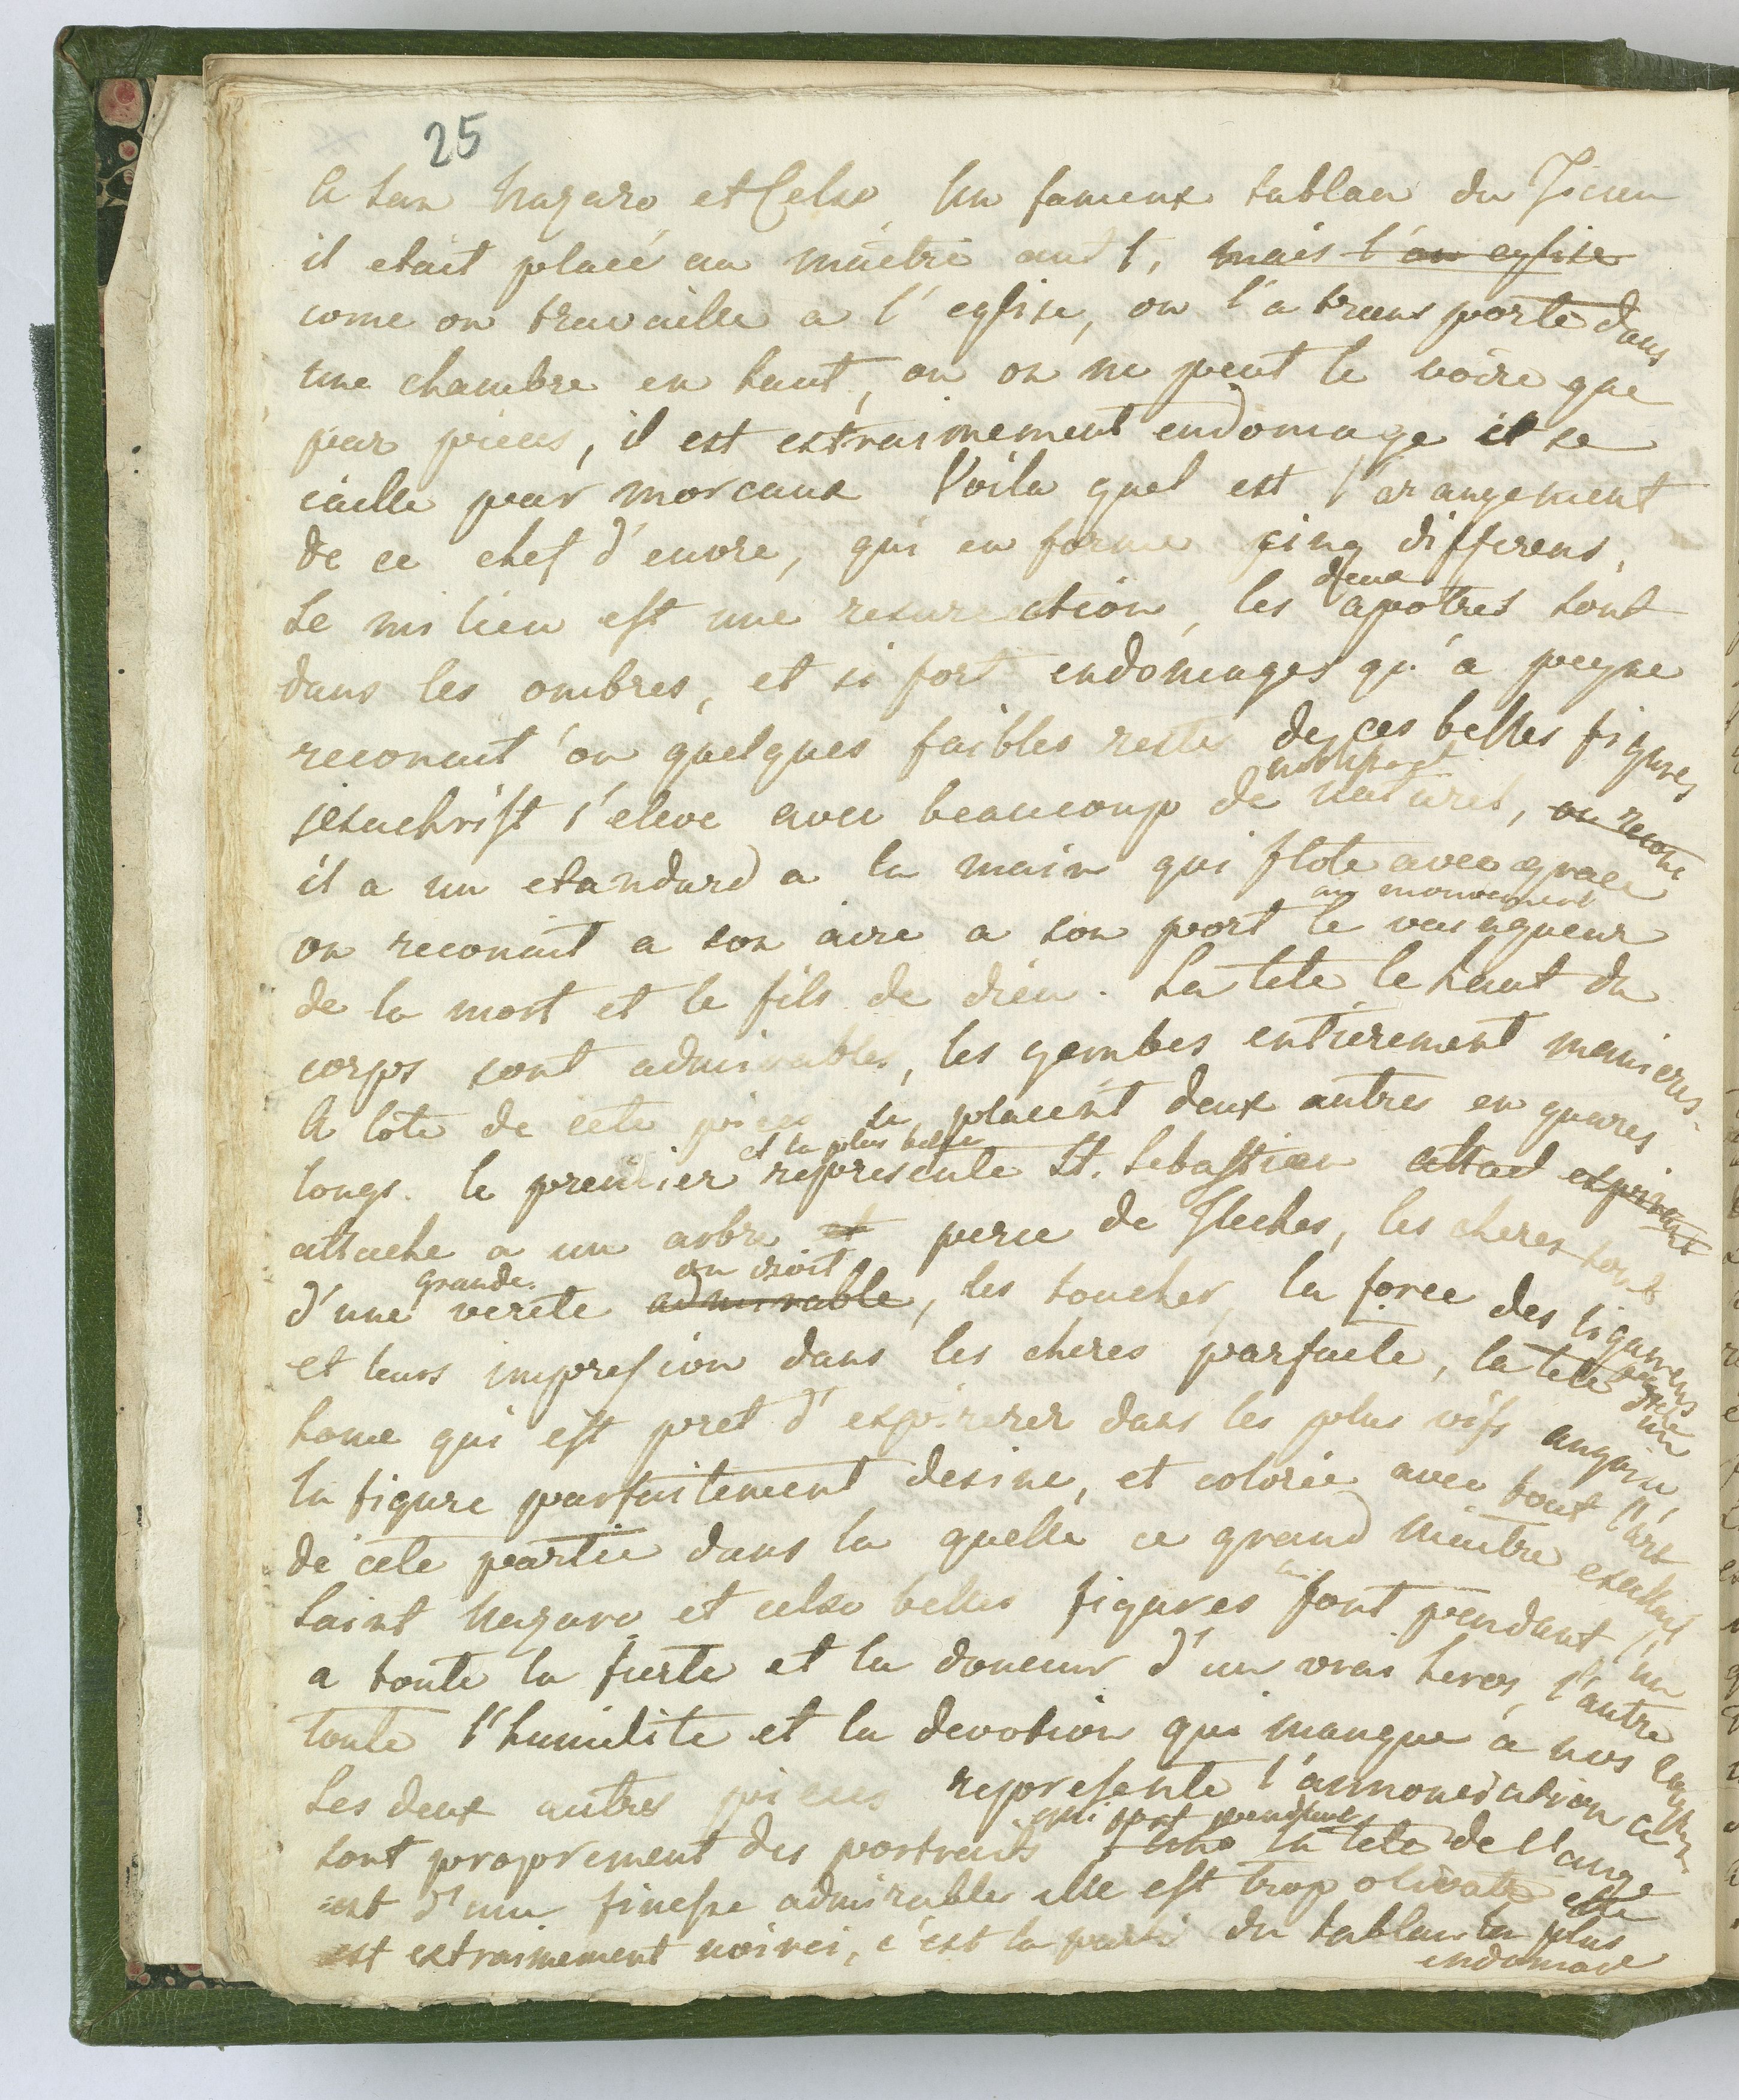 25
A San Nazaro et Celso Un fameux tablau du Ticien
il etait placé au maitre autl, mais l'on eglise
come on travaille a l'eglise, on l'a transporte dans
une chambre en haut, ou on ne peut le voire que
par pieces, il est extraimement endomage il se
caille par morcaux Voila quel est l'arangement
de ce chef d'euvre, qui en forme çinq differens,
deux
Le milieu est une resurection, les apotres sont
dans les ombres, et si fort endomages qu'a peyne
reconait'on quelques faibles restes de ces belles figures
jesuchrist s'eleve avec beaucoup de naturel, on recone
il a un etandard a la main qui flote avec grace
au mouvement
on reconait a son aire a son port le vainqueur
de la mort et le fils de dieu. La tete le haut du
corps sont admirables, les gambes entierement manieres.
A cote de cete piece se placent deux autres en quares
et la plus belle
longs. le premier represente St. Sebastien attad expirant
attache a un arbre et perce de fleches, les cheres sont
grande on droit
d'une verite admirable, les toucher, la force des ligamens
et leurs impression dans les cheres parfaite, la tete d'un
home qui est pret d'expirerer dans les plus vifs angoise,
la figure parfaitement desine, et colorie avec tout l'art
de cete partie dans la quelle ce grand maitre exelait
Saint Nazaro et celso belles figures font pendant l'un
a toute la fierte et la douceur d'un vrai heros, l'autre
toute l'humilite et la devotion qui manque a nos
Les deux autres pieces represente l'annonciation ce
qui font pendant
sont proprement des portraits la tete de l'ange
est d'une finesse admirable elle est trop olivatre elle
est extraimement noirci, c'est la partie du tablau la plus
endomage